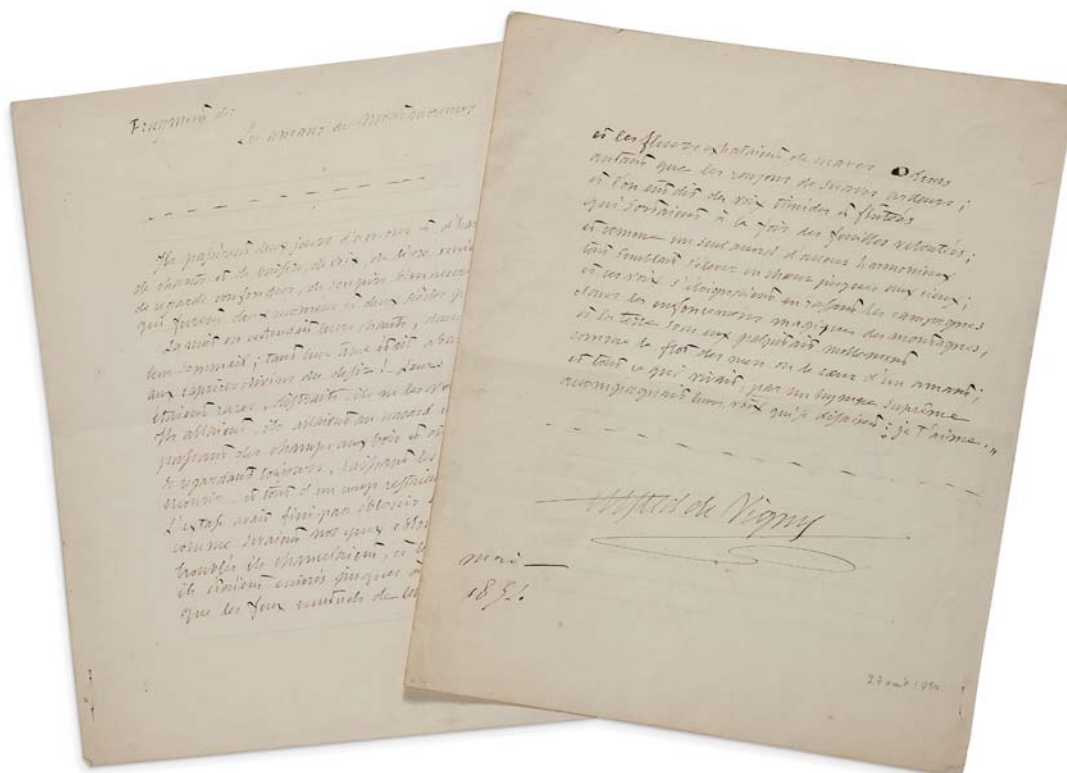 Fragment de:
Les amants de Montmorency
Ils passèrent deux jours d'amour et d'har
de chants et de baisers, de voix, de lèvre unie
de regards confondus, de soupirs bienheureux
qui furent deux moments et deux siècles p
La nuit on entendait leurs chants; dans
leur sommeil; tant leur âme était aban
aux caprices divins du désir! Leurs
étaient rares, distraits, ils ne les v
Ils allaient, ils allaient au hasard
passant des champs aux bois et
se regardant toujours, laissant les
mourir, et tout d'un coup restaient
L'extase avait fini par éblouir
comme seraient nos yeux éblou
troublés ils chancelaient, et le
ils étaient enivrés jusques
que les feux mutuels de
et les fleurs exhalaient de suaves odeurs
autant que les rayons de suaves ardeurs;
et l'on eût dit des voix timides et flûtées
qui sortaient à la fois des feuilles veloutées;
et comme un seul accord d'accens harmonieux
tout semblait s'élever en chœur jusques aux cieux;
et ces voix s'éloignaient en rasant les campagnes
dans les enfoncemens magiques des montagnes,
et la terre sous eux palpitait mollement
comme le flot des mers ou le cœur d'un amant;
et tout ce qui vivait, par un hymne suprême
accompagnait leurs voix qui se disaient: je t'aime."
Alfred de Vigny
mai